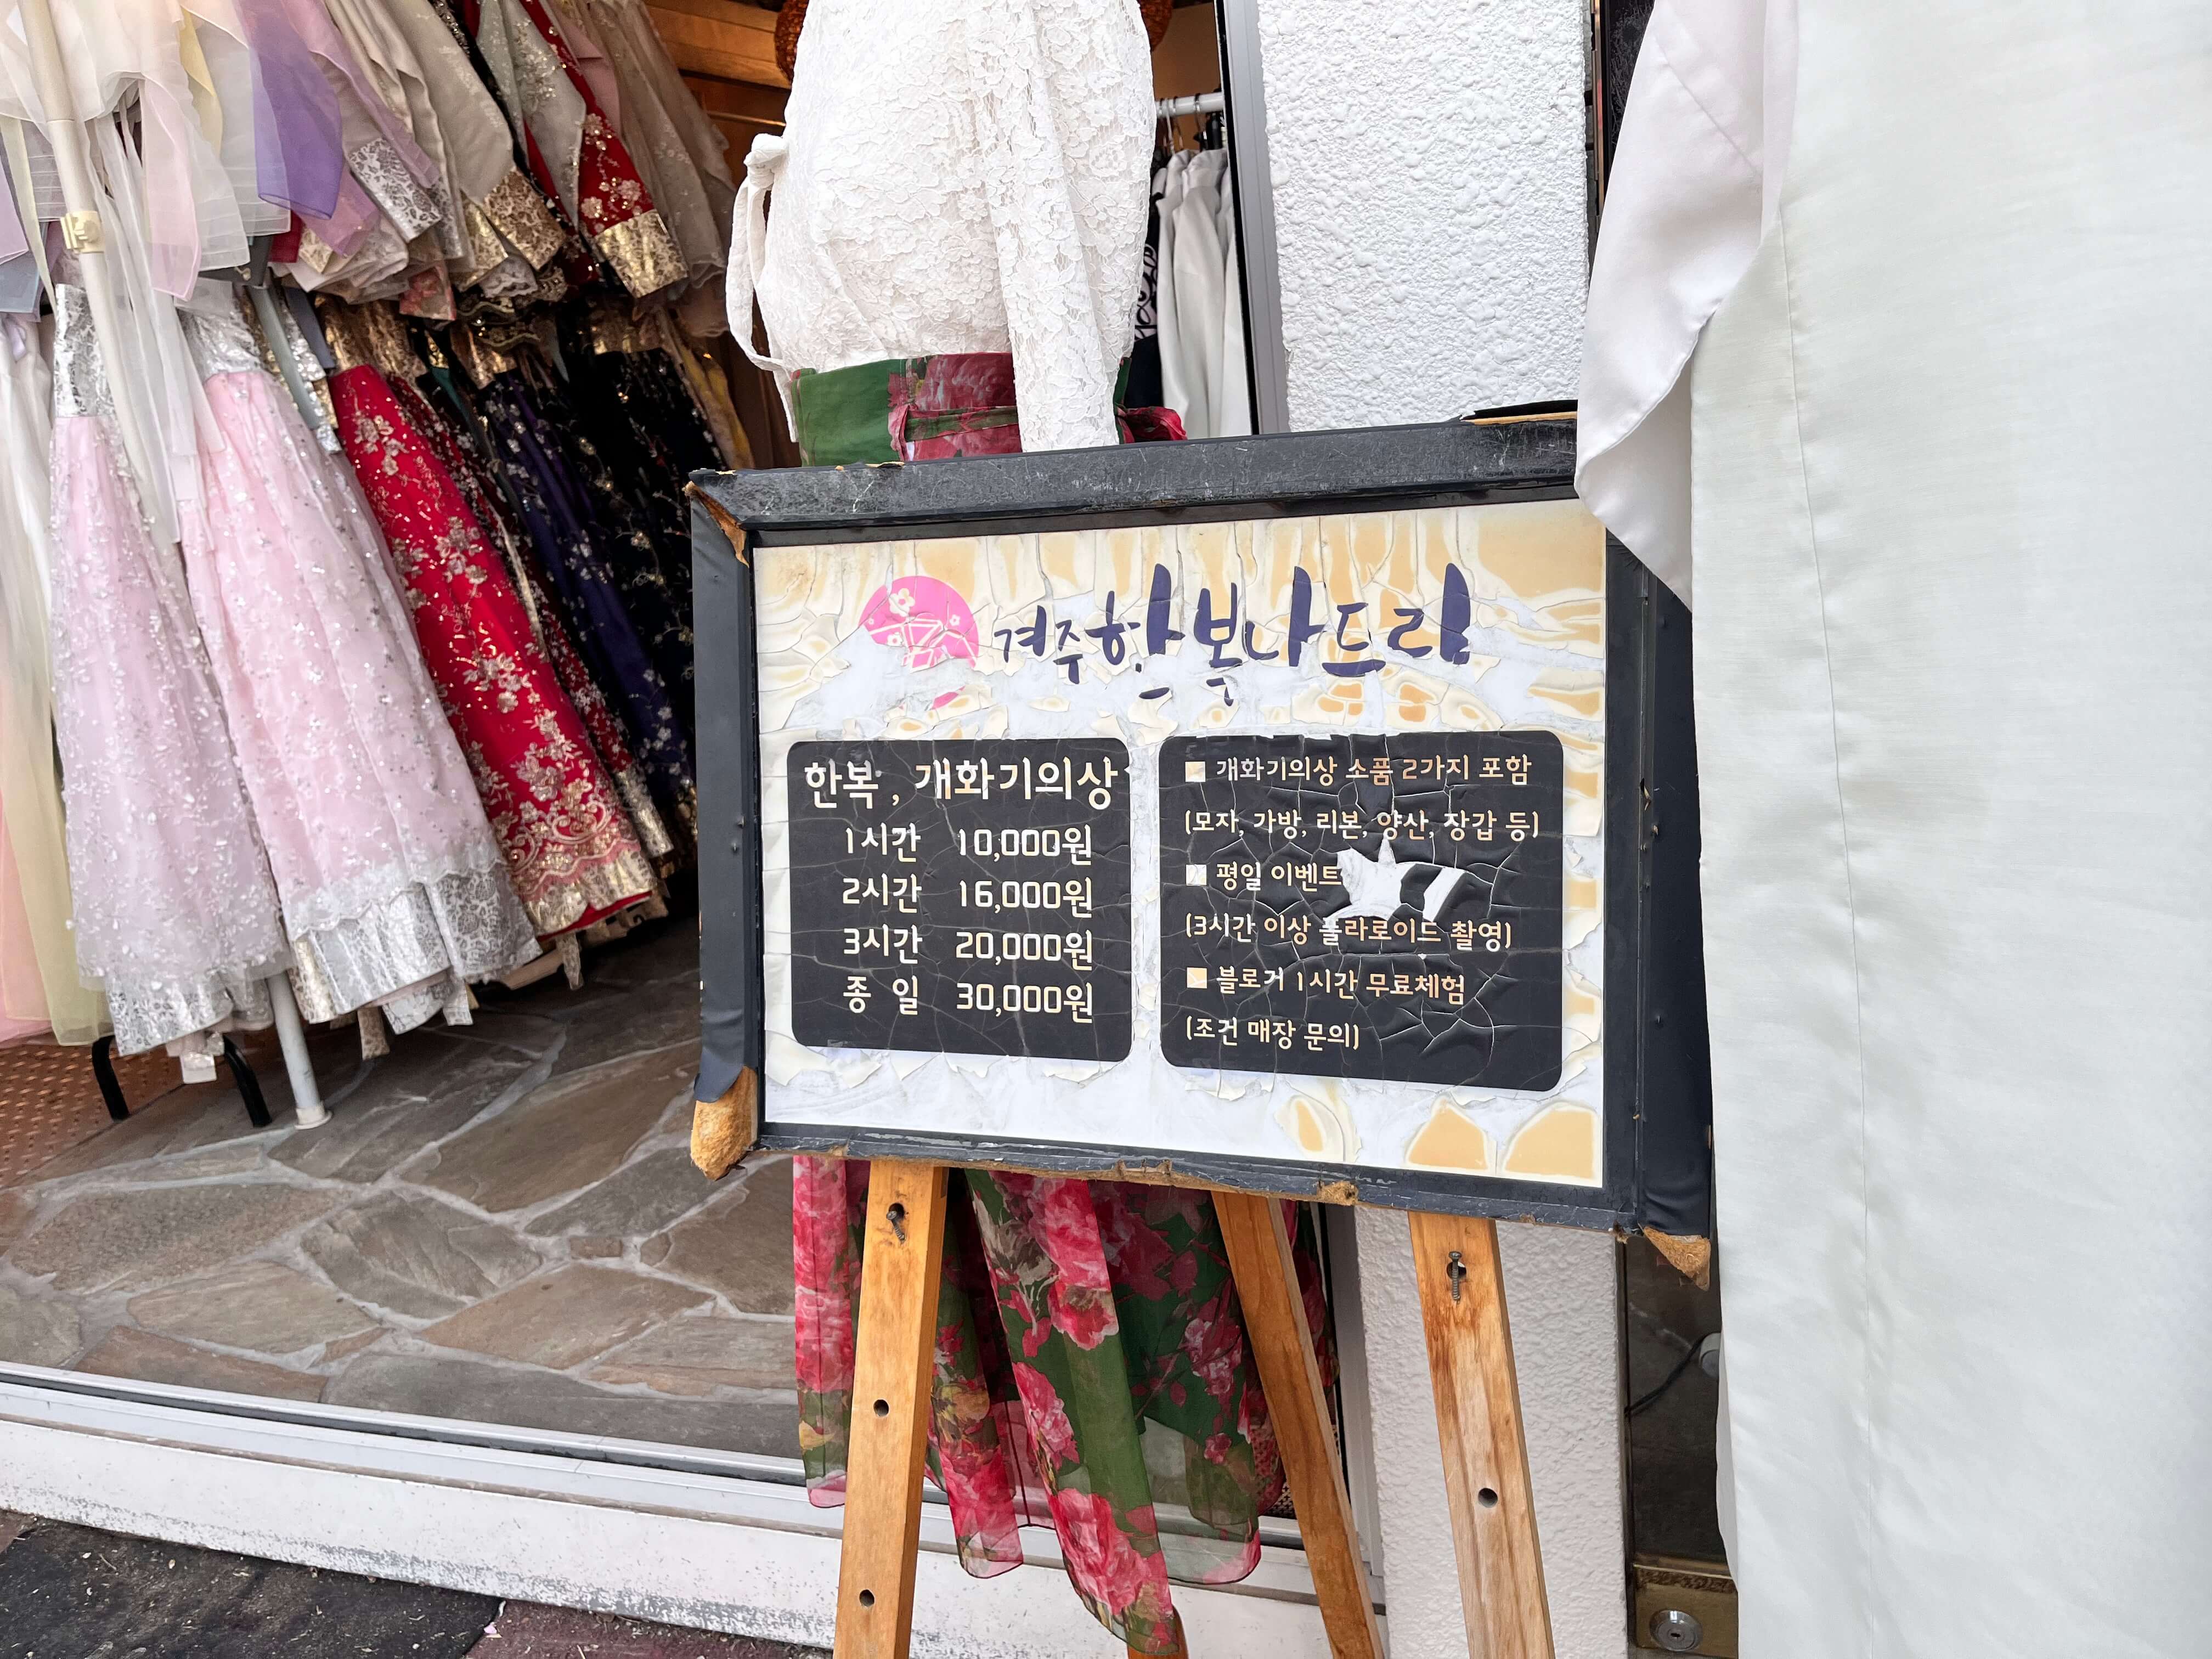 경주한복나드림
한복, 개화기의상
1시간 10,000원
2시간 16,000원
3시간 20,000원
종 일 30,000원
■ 개화기의상 소품 2가지 포함
(모자, 가방, 리본, 양산, 장갑 등)
■ 평일 이벤트
(3시간 이상 폴라로이드 촬영)
■ 블로거 1시간 무료체험
(조건 매장 문의)